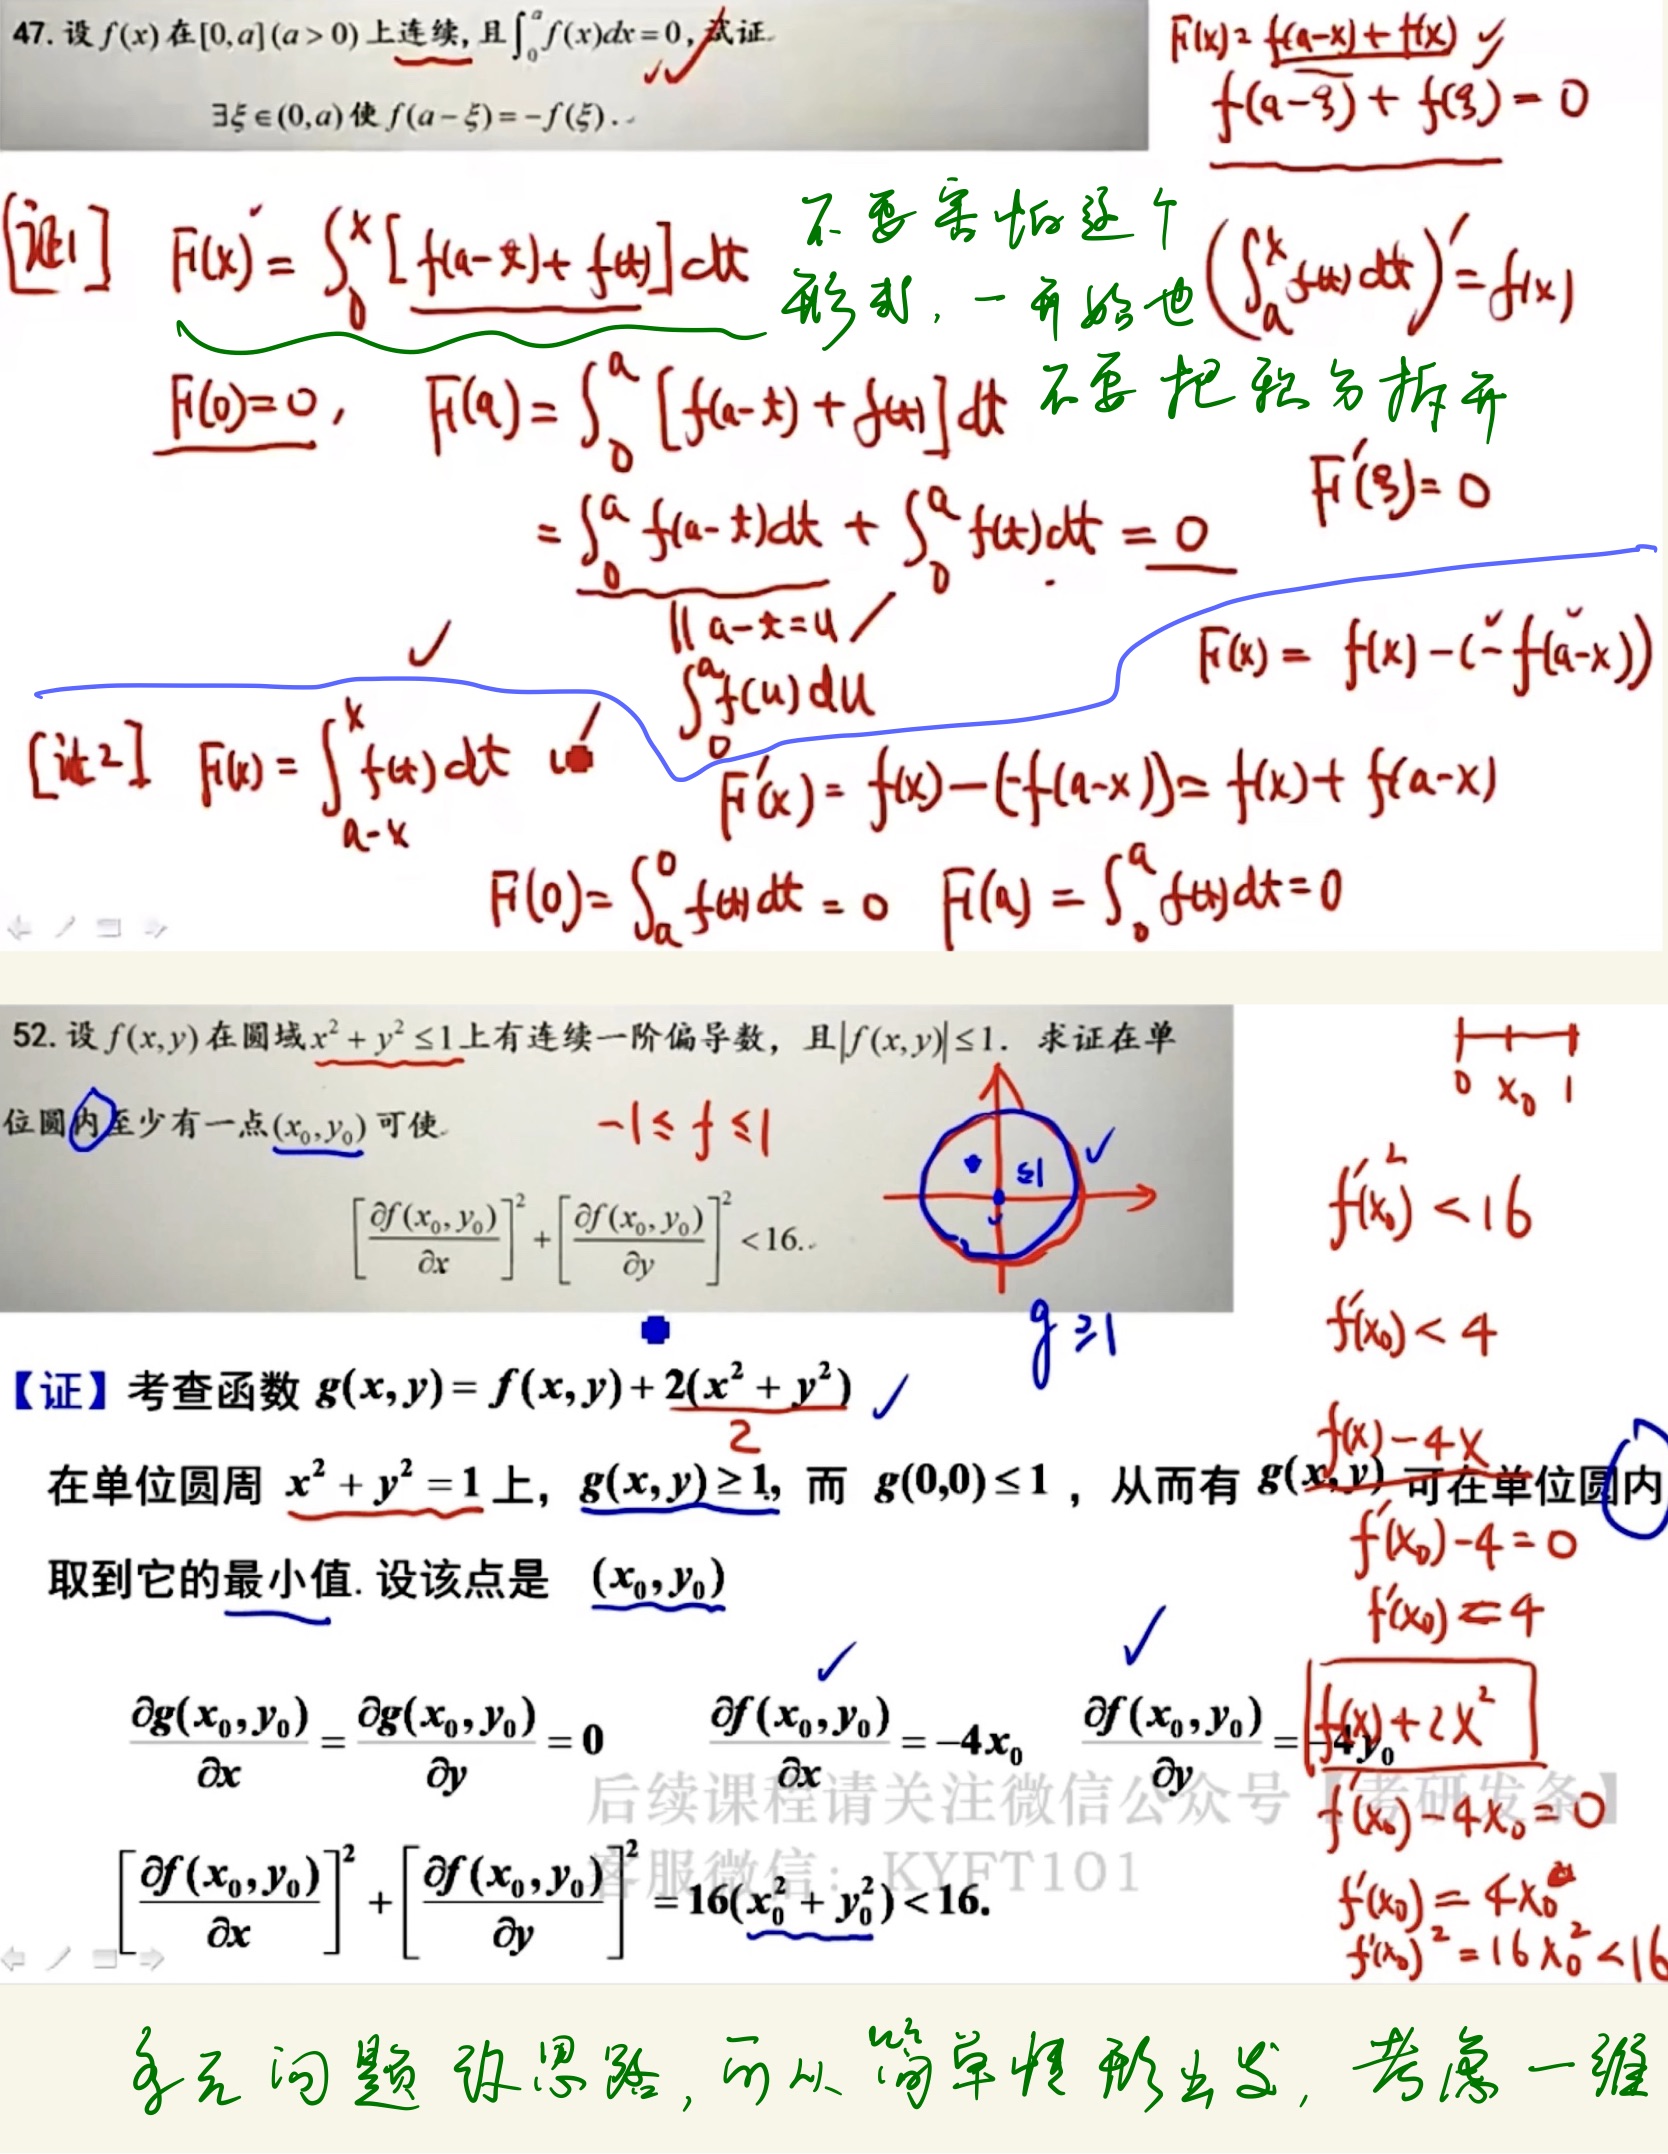 47. 设 f(x) 在 [0,a](a>0) 上连续, 且 ∫₀ᵃ f(x)dx=0, 试证
∃ξ∈(0,a) 使 f(a−ξ)=−f(ξ).
F(x)= f(a-x)+f(x) ✓
f(a-ξ)+f(ξ)=0
[证1] F(x)=∫₀ˣ[f(a-t)+f(t)]dt
不要害怕这个
形式, 一开始也
不要把积分拆开
(∫ₐˣ f(t)dt)′=f(x)
F(0)=0, F(a)=∫₀ᵃ[f(a-t)+f(t)]dt
F′(ξ)=0
=∫₀ᵃ f(a-t)dt+∫₀ᵃ f(t)dt=0
|| a-t=u
∫₀ᵃ f(u)du
F(x)= f(x)-(-f(a-x))
[证2] F(x)=∫_{a-x}^{x} f(t)dt
F′(x)= f(x)-(-f(a-x))= f(x)+f(a-x)
F(0)=∫ₐ⁰ f(t)dt=0 F(a)=∫₀ᵃ f(t)dt=0
52. 设 f(x,y) 在圆域 x²+y²≤1 上有连续一阶偏导数, 且|f(x,y)|≤1. 求证在单
位圆内至少有一点(x₀,y₀) 可使
-1≤f≤1
≤1
0 x₀ 1
[∂f(x₀,y₀)/∂x]²+[∂f(x₀,y₀)/∂y]²<16.
g≥1
f′²(x₀)<16
f′(x₀)<4
【证】考查函数 g(x,y)=f(x,y)+2(x²+y²)
2
f(x)-4x
在单位圆周 x²+y²=1 上, g(x,y)≥1, 而 g(0,0)≤1, 从而有 g(x,y) 可在单位圆内
f′(x₀)-4=0
取到它的最小值. 设该点是 (x₀,y₀)
f′(x₀)=4
∂g(x₀,y₀)/∂x=∂g(x₀,y₀)/∂y=0 ∂f(x₀,y₀)/∂x=−4x₀ ∂f(x₀,y₀)/∂y=−4y₀
f(x)+2x²
后续课程请关注微信公众号【考研发条】
f′(x₀)-4x₀=0
客服微信: KYFT101
[∂f(x₀,y₀)/∂x]²+[∂f(x₀,y₀)/∂y]²=16(x₀²+y₀²)<16.
f′(x₀)=4x₀
f′(x₀)²=16x₀²<16
多元问题没思路, 可从简单情形出发, 考虑一维